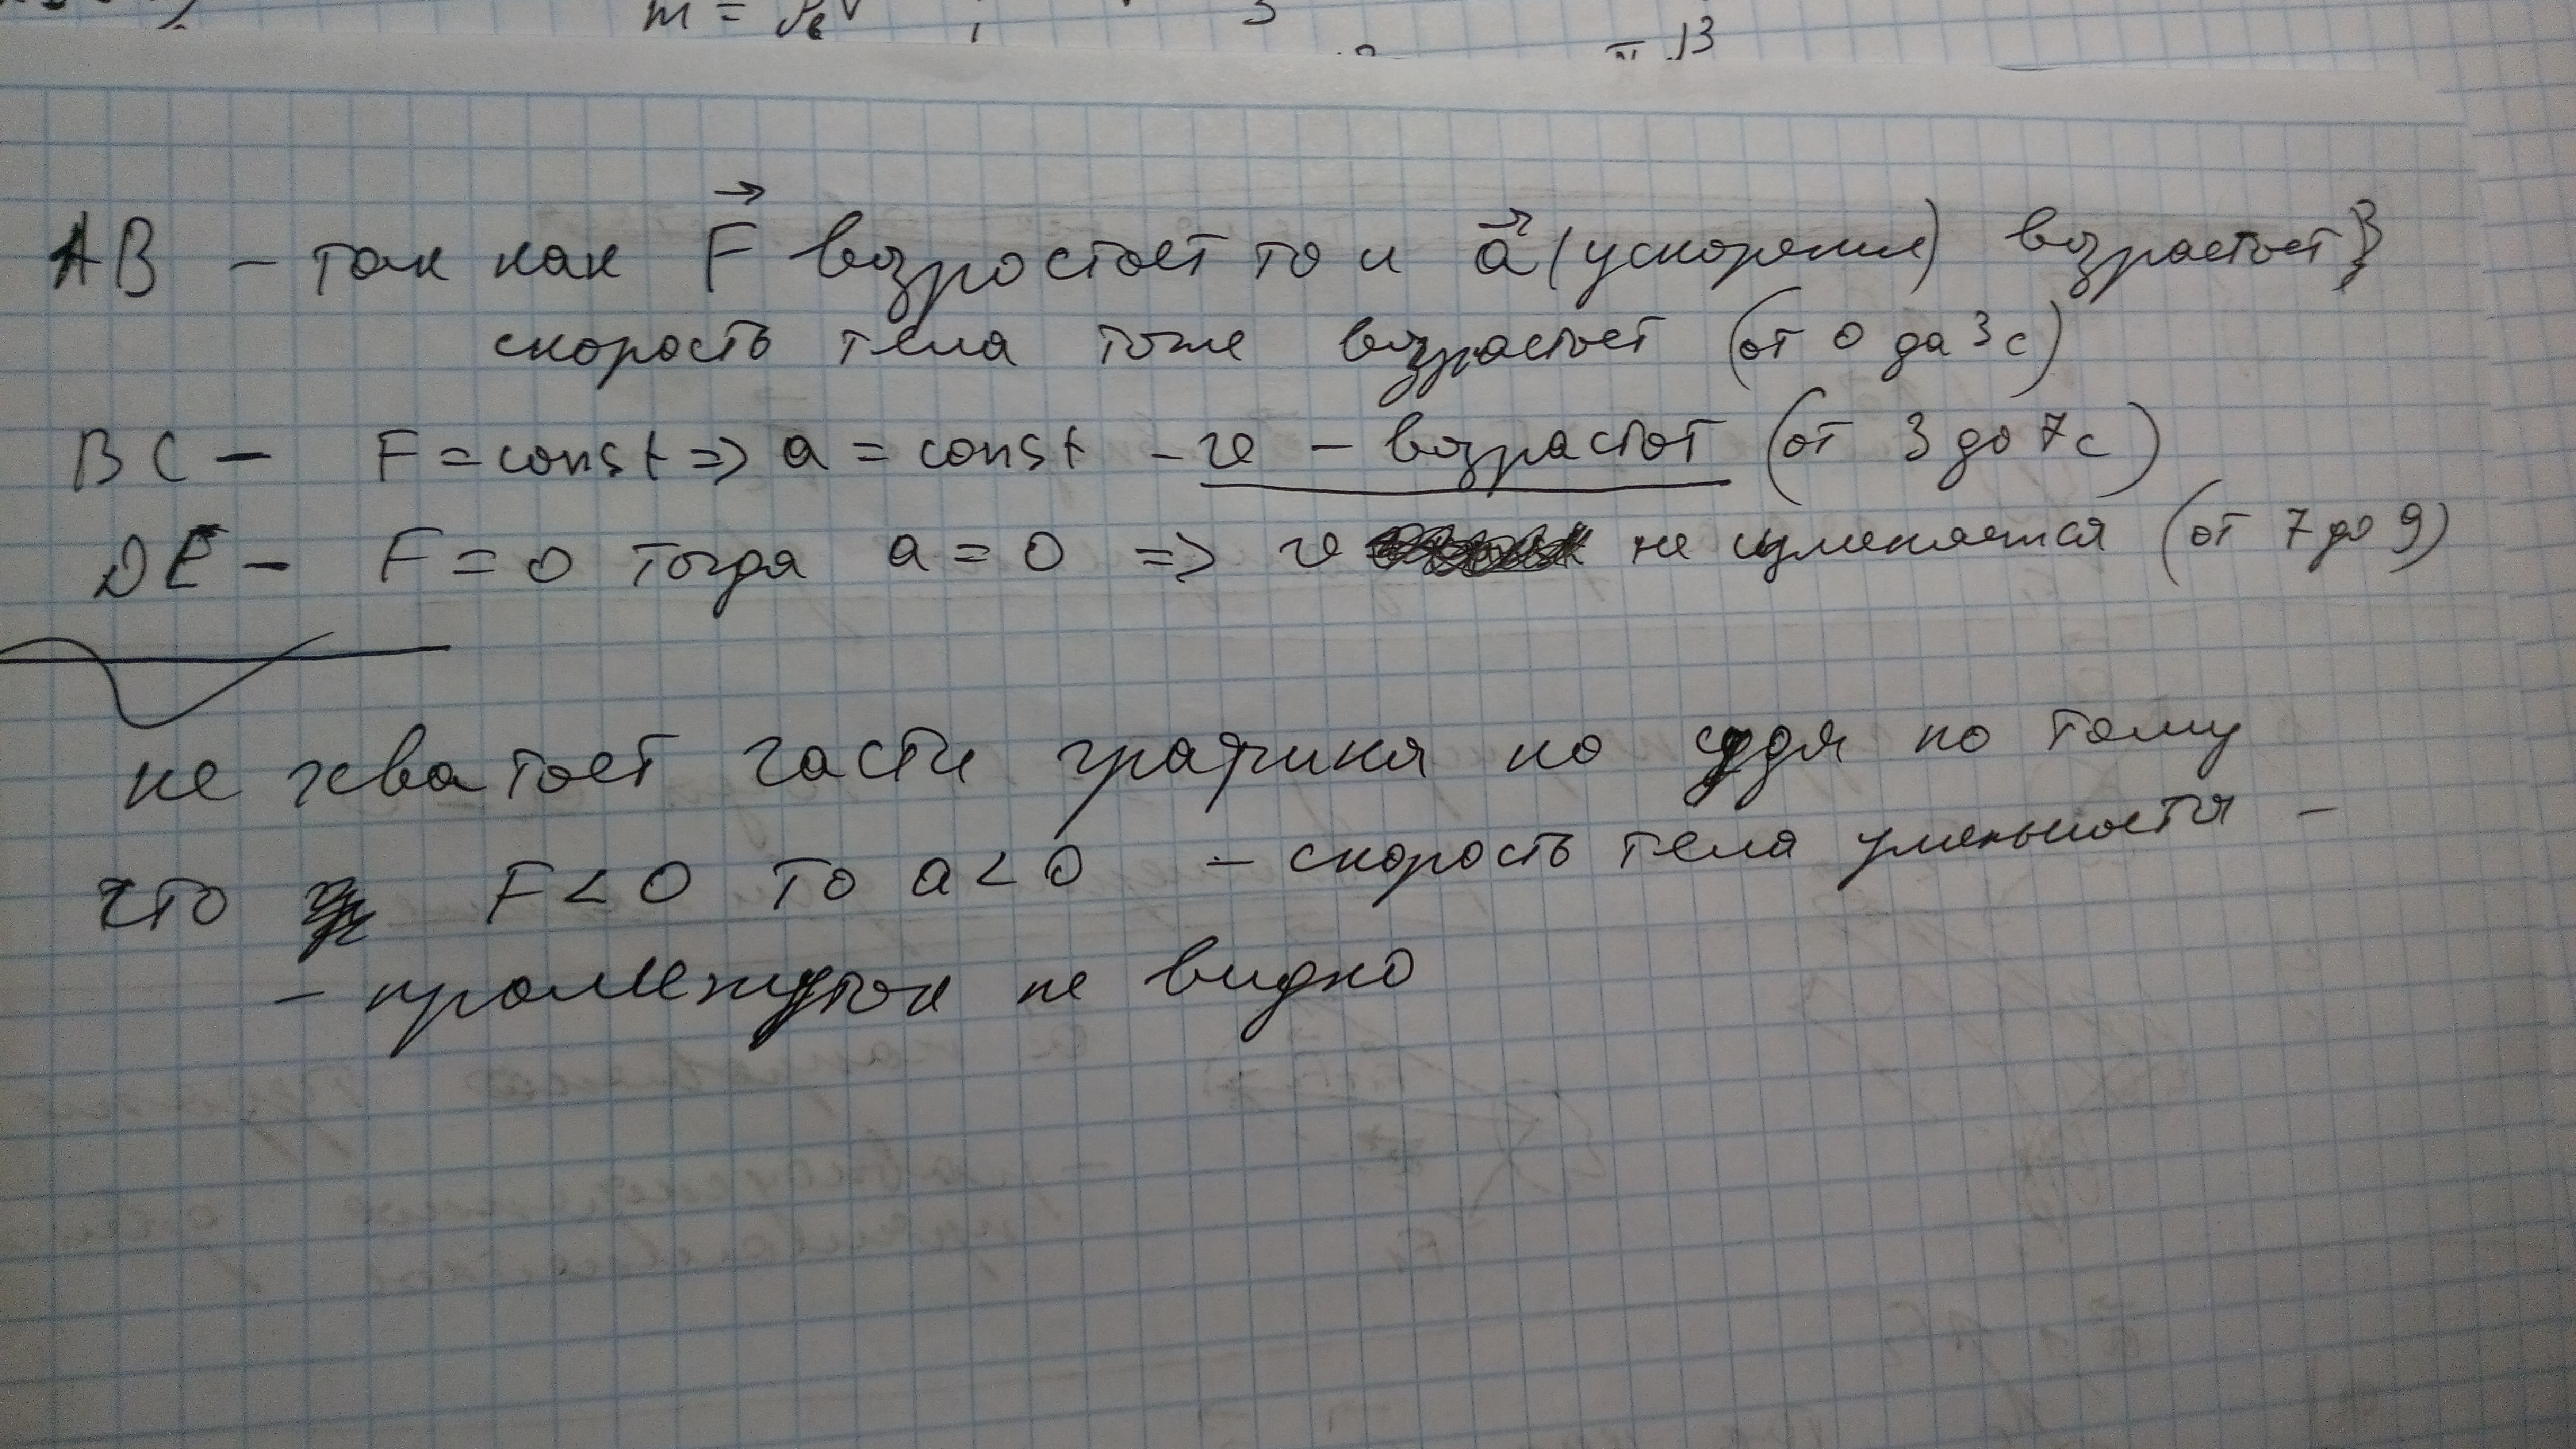 m = ρвV ; 3
= 13
AB – так как F возростает то и a (ускорения) возрастает}
скорость тела тоже возрастает (от 0 да 3 с)
BC – F = const => a = const – v – возрастот (от 3 до 7 с)
DE – F = 0 тогда a = 0 => v не изменяется (от 7 до 9)
не хватает части графика но судя по тому
что F < 0 то a < 0 – скорость тела уменьшается –
– промежуток не видно